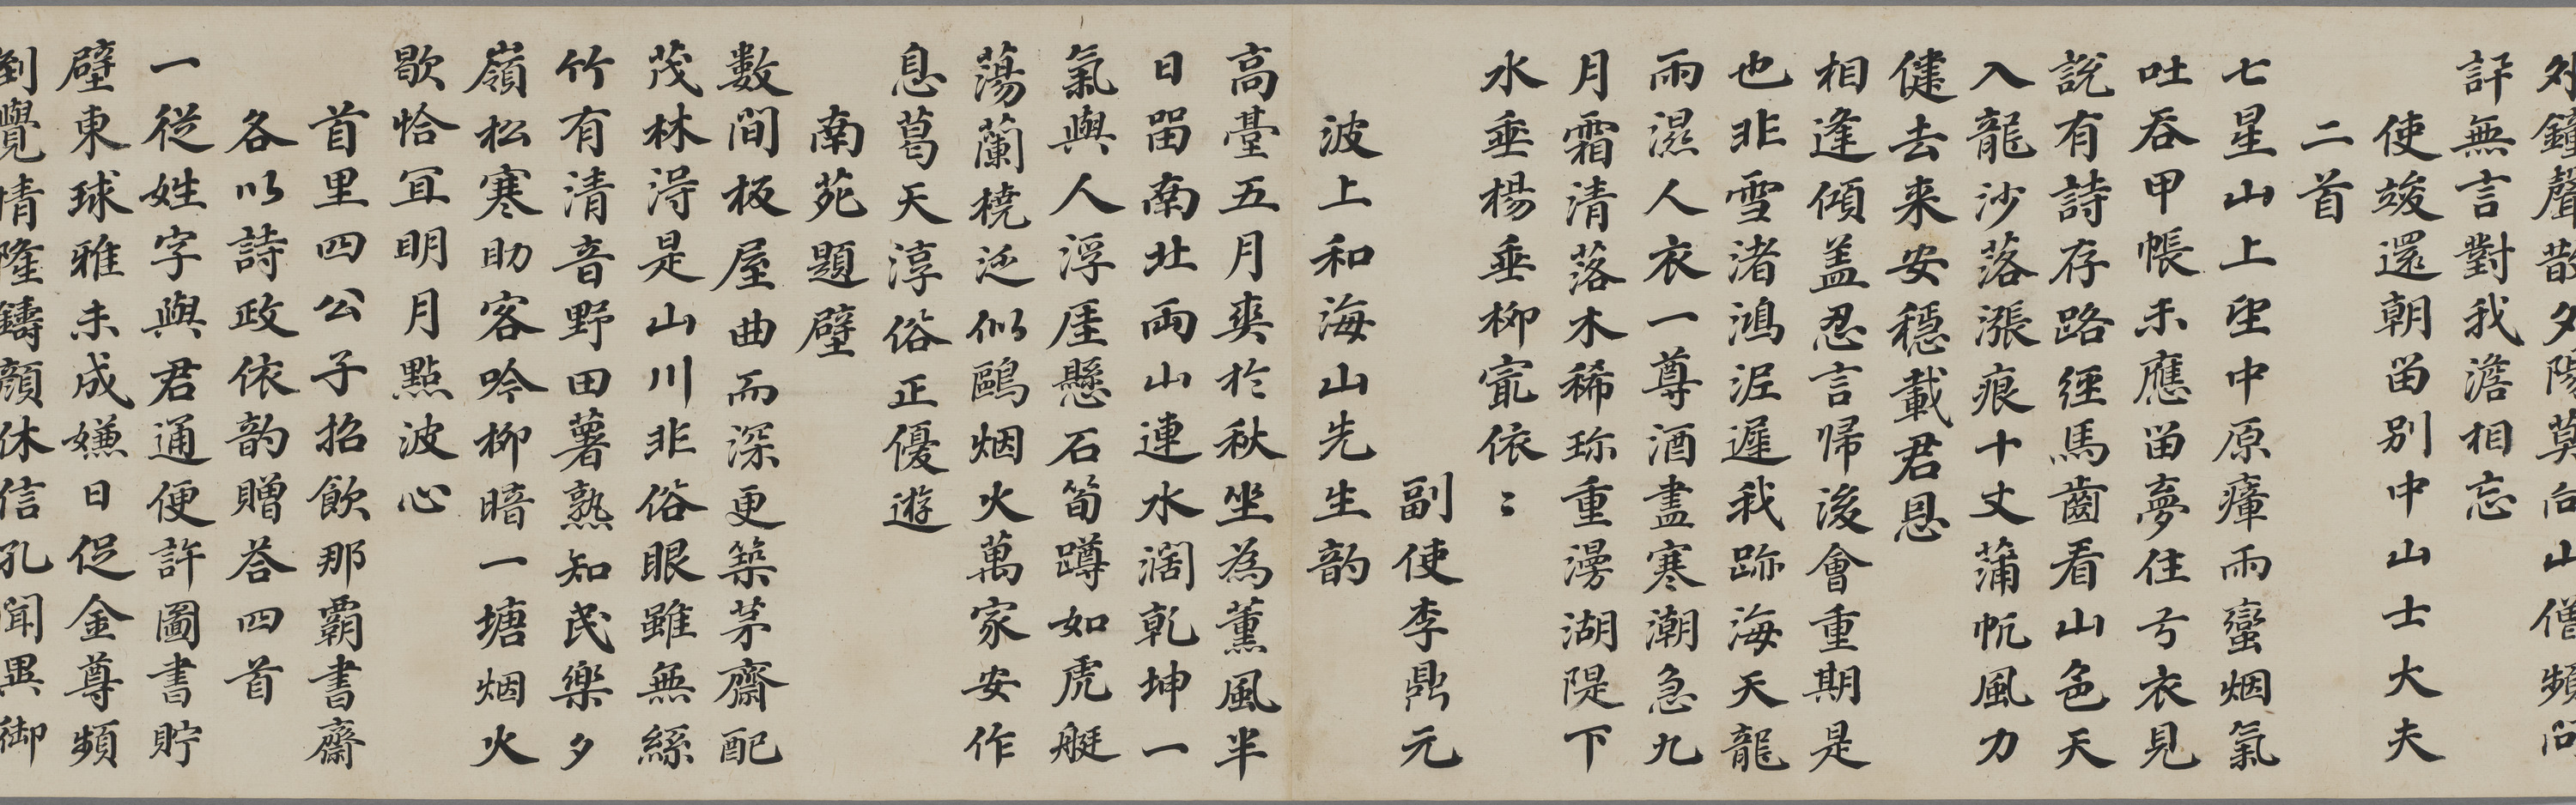 外鐘聲散夕陽莫向山僧頻問
訊無言對我澹相忘
使竣還朝留別中山士大夫
二首
七星山上望中原瘴雨蠻烟氣
吐吞甲帳未應留夢住弓衣見
說有詩存路經馬齒看山色天
入龍沙落漲痕十丈蒲帆風力
健去来安穩載君恩
相逢傾盖忍言帰後會重期是
也非雪渚鴻泥遲我跡海天龍
雨濕人衣一尊酒盡寒潮急九
月霜清落木稀珎重湯湖隄下
水垂楊垂柳寔依〻
副使李鼎元
波上和海山先生韵
高臺五月爽於秋坐為薰風半
日留南北兩山連水濶乾坤一
氣與人浮厓懸石筍蹲如虎艇
蕩蘭橈泛似鷗烟火萬家安作
息葛天淳俗正優遊
南苑題壁
數間板屋曲而深更築茅齋配
茂林淂是山川非俗眼雖無絲
竹有清音野田薯熟知民樂夕
嶺松寒助客吟柳暗一塘烟火
歇恰宜明月點波心
首里四公子招飲那覇書齋
各以詩政依韵贈荅四首
一從姓字與君通便許圖書貯
壁東球雅未成嫌日促金尊頻
到覺情隆鑄顏休信孔聞異御